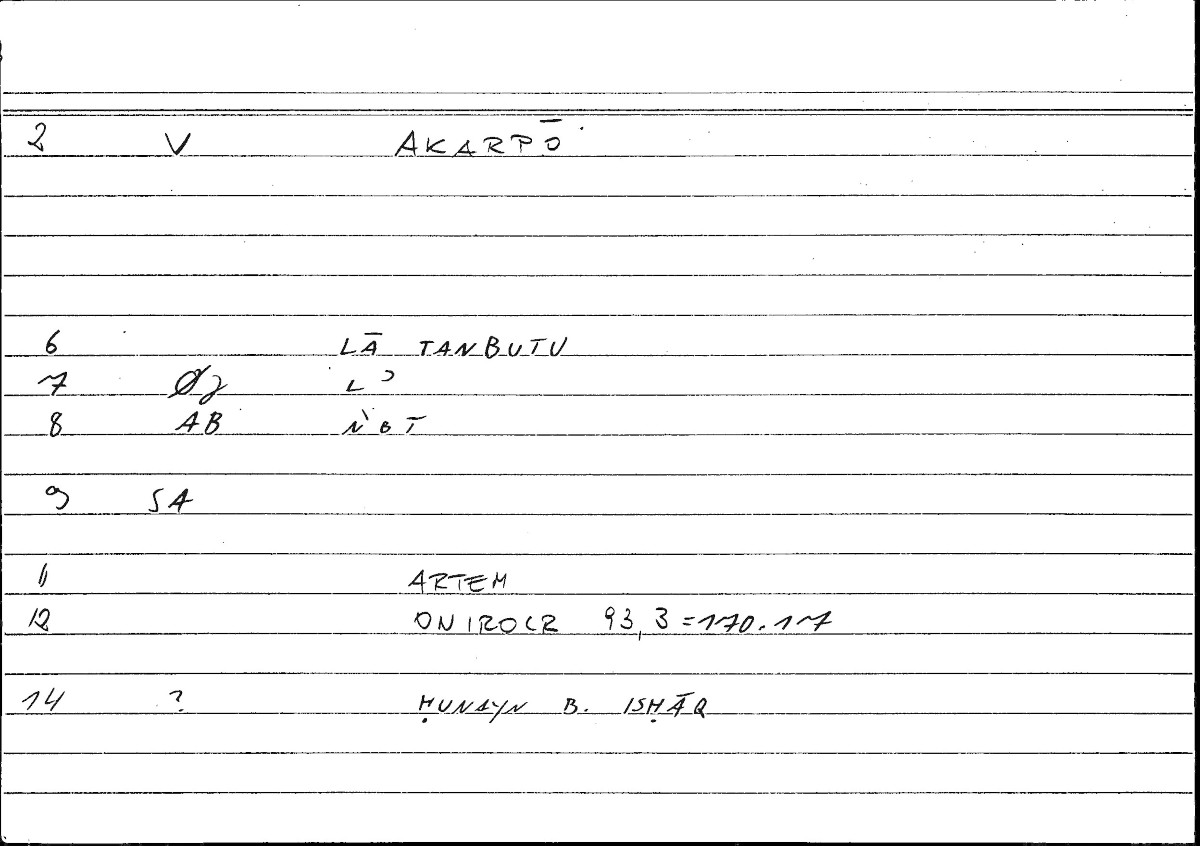 2 V AKARPŌ
6 LĀ TANBUTU
7 L ʾ
8 AB NBT
9 SA
11 ARTEM
12 ONIROCR 93,3=170.17
14 ? ḤUNAYN B. ISḤĀQ